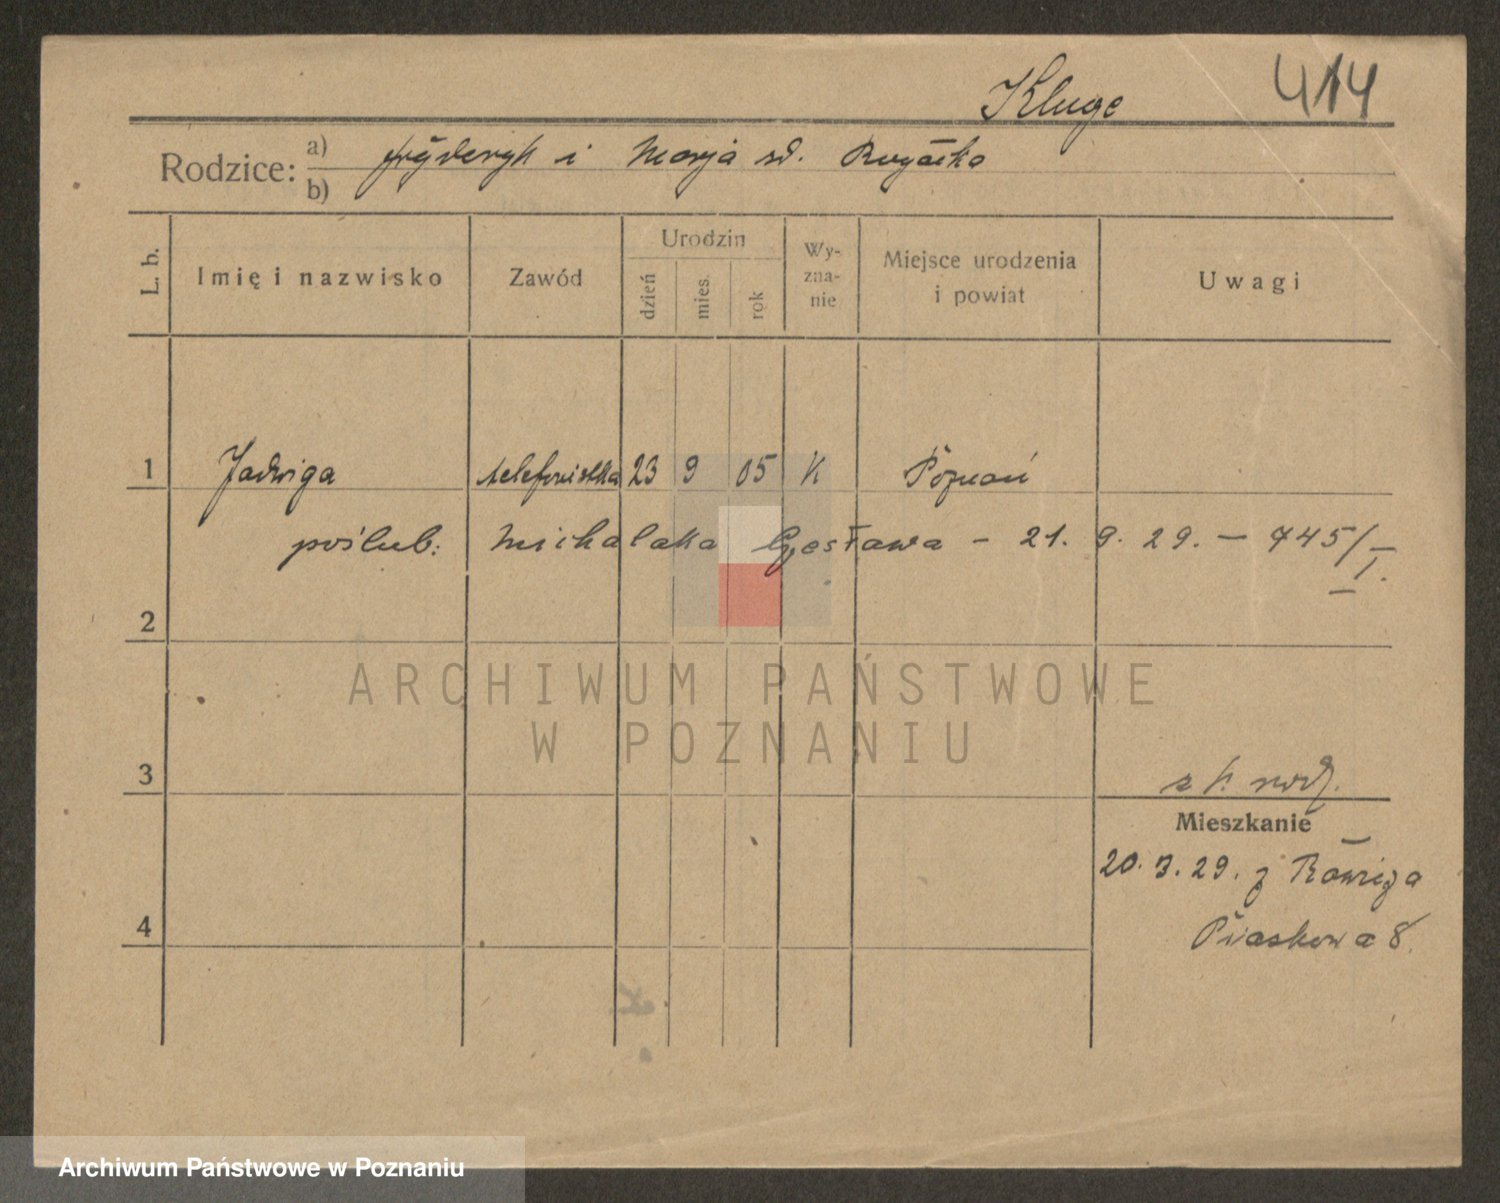 Kluge 414
Rodzice: a) Fryderyk i Marja sd.
b)
L. b.
Imię i nazwisko
Zawód
Urodzin
dzień
mies.
rok
Wy-
zna-
nie
Miejsce urodzenia
i powiat
Uwagi
1 Jadwiga telefonistka 23 9 05 K Poznań
poślub: Michalaka Czesława - 21. 9. 29. - 745/I.
2
ARCHIWUM PAŃSTWOWE
W POZNANIU
3
z k. rodz.
Mieszkanie
20. 3. 29. z
4
Piaskowa 8.
Archiwum Państwowe w Poznaniu